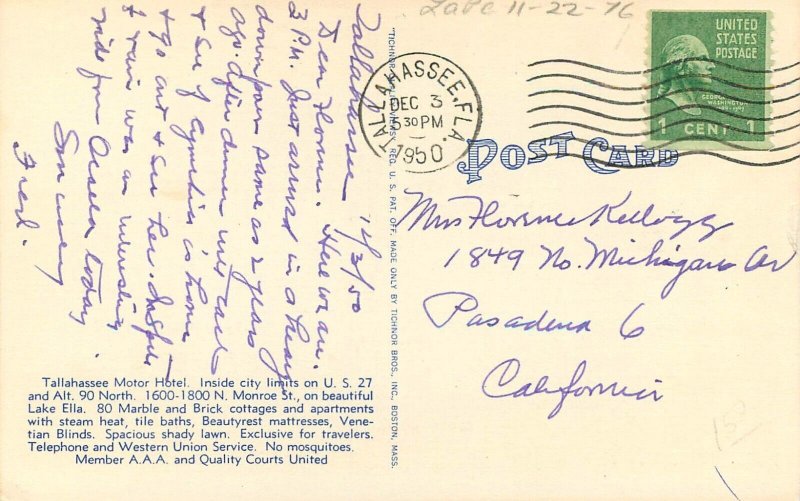 Tallahassee 12/3/50
3 P.M.
Dear Florence. Here we are.
Just arrived in a heavy
downpour same as 2 years
ago. After dinner will call
& see if Cynthia is home
& go out & see her. In spite
of rain was an interesting
ride from Ocala today.
Fred.
"TICHNOR QUALITY VIEWS," REG. U. S. PAT. OFF. MADE ONLY BY TICHNOR BROS., INC., BOSTON, MASS.
Tallahassee Motor Hotel. Inside city limits on U. S. 27
and Alt. 90 North. 1600-1800 N. Monroe St., on beautiful
Lake Ella. 80 Marble and Brick cottages and apartments
with steam heat, tile baths, Beautyrest mattresses, Vene-
tian Blinds. Spacious shady lawn. Exclusive for travelers.
Telephone and Western Union Service. No mosquitoes.
Member A.A.A. and Quality Courts United
11-22-76
TALLAHASSEE, FLA.
DEC 3
30 PM
1950
UNITED
STATES
POSTAGE
GEORGE
WASHINGTON
1 CENT 1
POST CARD
Mrs Florence Kellogg
1849 No. Michigan Av
Pasadena 6
California
150